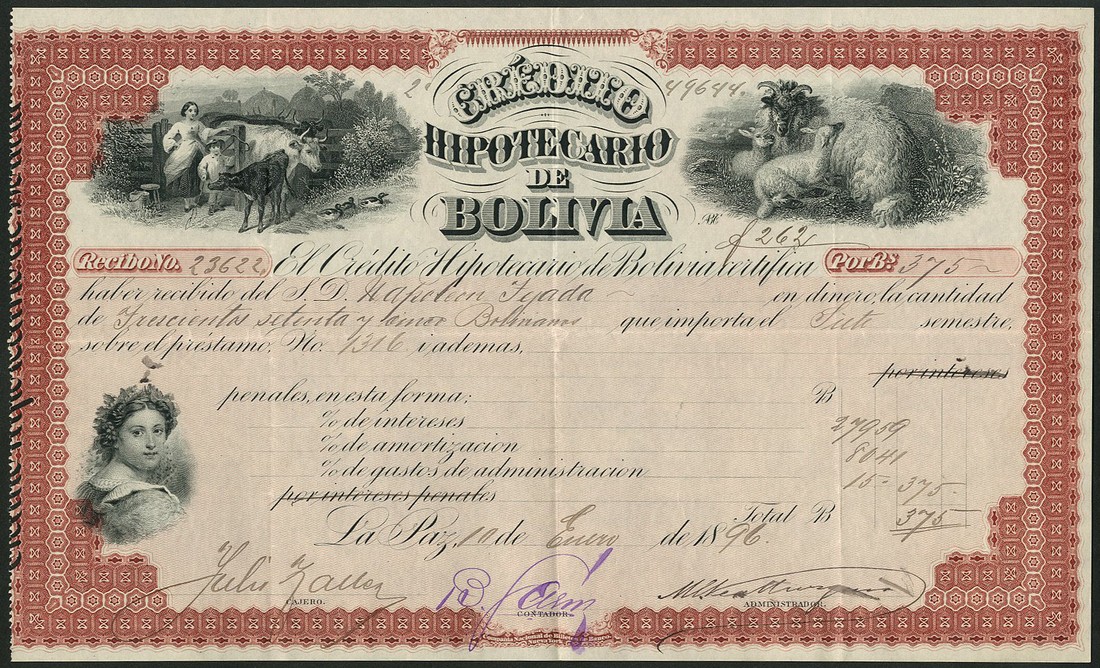 CRÉDITO
49644.
HIPOTECARIO
DE
BOLIVIA
262
Recibo No. 23622, El Crédito Hipotecario de Bolivia certifica Por Bs. 375
haber recibido del S. D. Napoleon Tejada en dinero, la cantidad
de Trescientos setenta y cinco Bolivianos que importa el Siete semestre,
sobre el préstamo, No. 1316 i ademas,
por intereses
penales, en esta forma; B
% de intereses 279 59
% de amortizacion 80 41
% de gastos de administracion 15 - 375
por intereses penales
Total B 375
La Paz, 10 de Enero de 1896.
Julio Zalles
CAJERO.
CONTADOR.
ADMINISTRADOR.
Compania Nacional de Billetes de Banco,
Nueva York